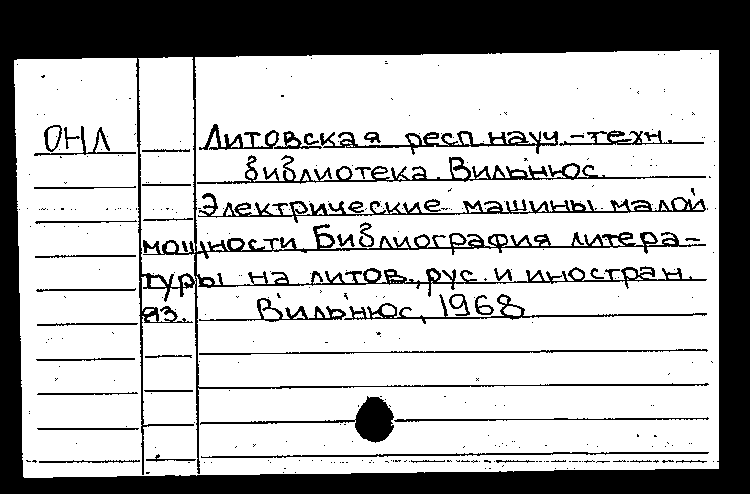 ОНЛ Литовская респ. науч.-техн.
библиотека. Вильнюс.
Электрические машины малой
мощности. Библиография литера-
туры на литов., рус. и иностран.
яз. Вильнюс, 1968